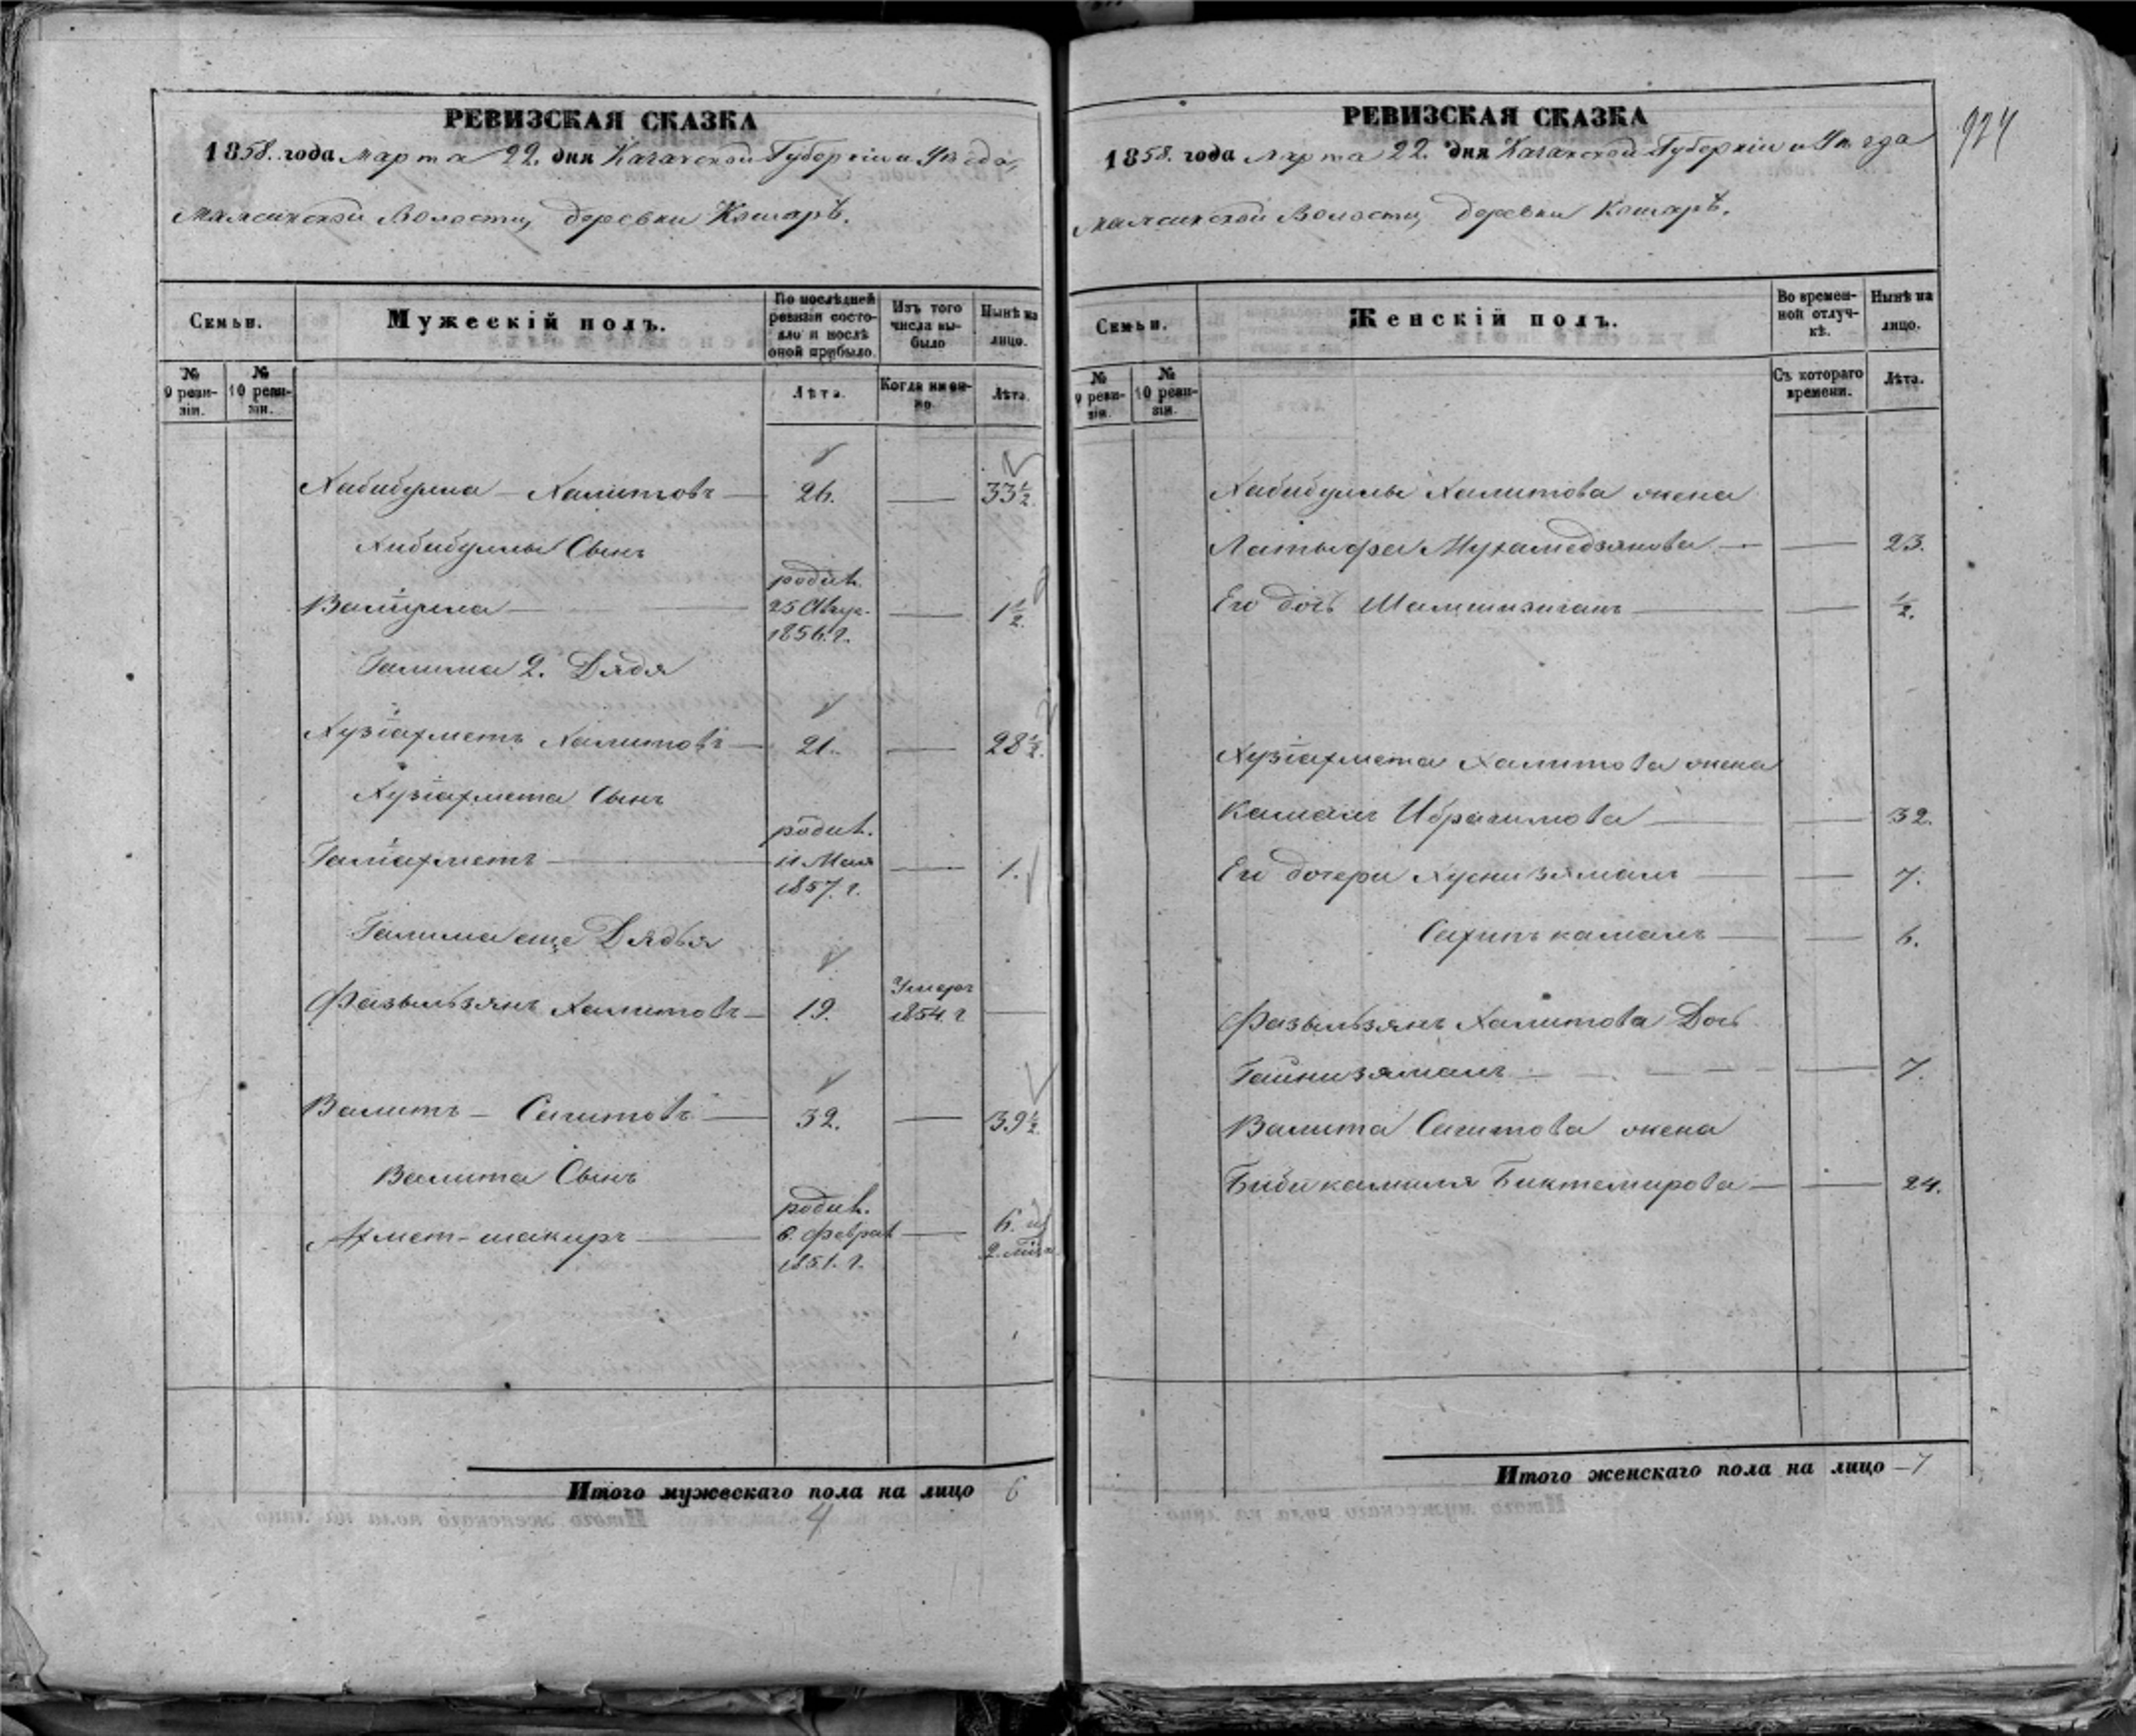 РЕВИЗСКАЯ СКАЗКА
1858. года марта 22. дня Казанской Губерніи и Уѣзда,
Волости, деревни Кошаръ.
Семьи.
Мужескій полъ.
По послѣдней ревизіи состояло и послѣ оной прибыло.
Изъ того числа выбыло
Нынѣ на лицо.
№ 9 ревизіи.
№ 10 ревизіи.
Лѣта.
Когда именно.
Лѣта.
Хабибулла — Халитовъ — 26. — 33 1/2.
Хабибуллы Сынъ
родил.
Валіулла — 25 Авгус. — 1 1/2.
1856. г.
Галима 2. Дядя
Хузіахметъ Халитовъ — 21. — 28 1/2.
Хузіахмета Сынъ
родил.
Галіахметъ — 11 Мая — 1.
1857. г.
Галима еще Дядья
Умеръ
Фазылзянъ Халитовъ — 19. 1854. г —
Валитъ — Сагитовъ — 32. — 39 1/2.
Валита Сынъ
родил.
Ахмет-шакиръ — 6. Феврал — 6. и
1851. г. 2. мѣся
Итого мужескаго пола на лицо 6
4
924
РЕВИЗСКАЯ СКАЗКА
1858. года марта 22. дня Казанской Губерніи и Уѣзда
Волости, деревни Кошаръ.
Семьи.
Женскій полъ.
Во временной отлучкѣ.
Нынѣ на лицо.
№ 9 ревизіи.
№ 10 ревизіи.
Съ котораго времени.
Лѣта.
Хабибуллы Халитова жена
Латыфа Мухамедзянова — — 23.
Его дочь — — 1/2.
Хузіахмета Халитова жена
Камаль Ибрагимова — — 32.
Его дочери Хуснизямаль — — 7.
Сахипъ камаль — — 6.
Фазылзянъ Халитова Дочь
Гайнизямаль — — 7.
Валита Сагитова жена
Биби камиля Биктемирова — — 24.
Итого женскаго пола на лицо — 7